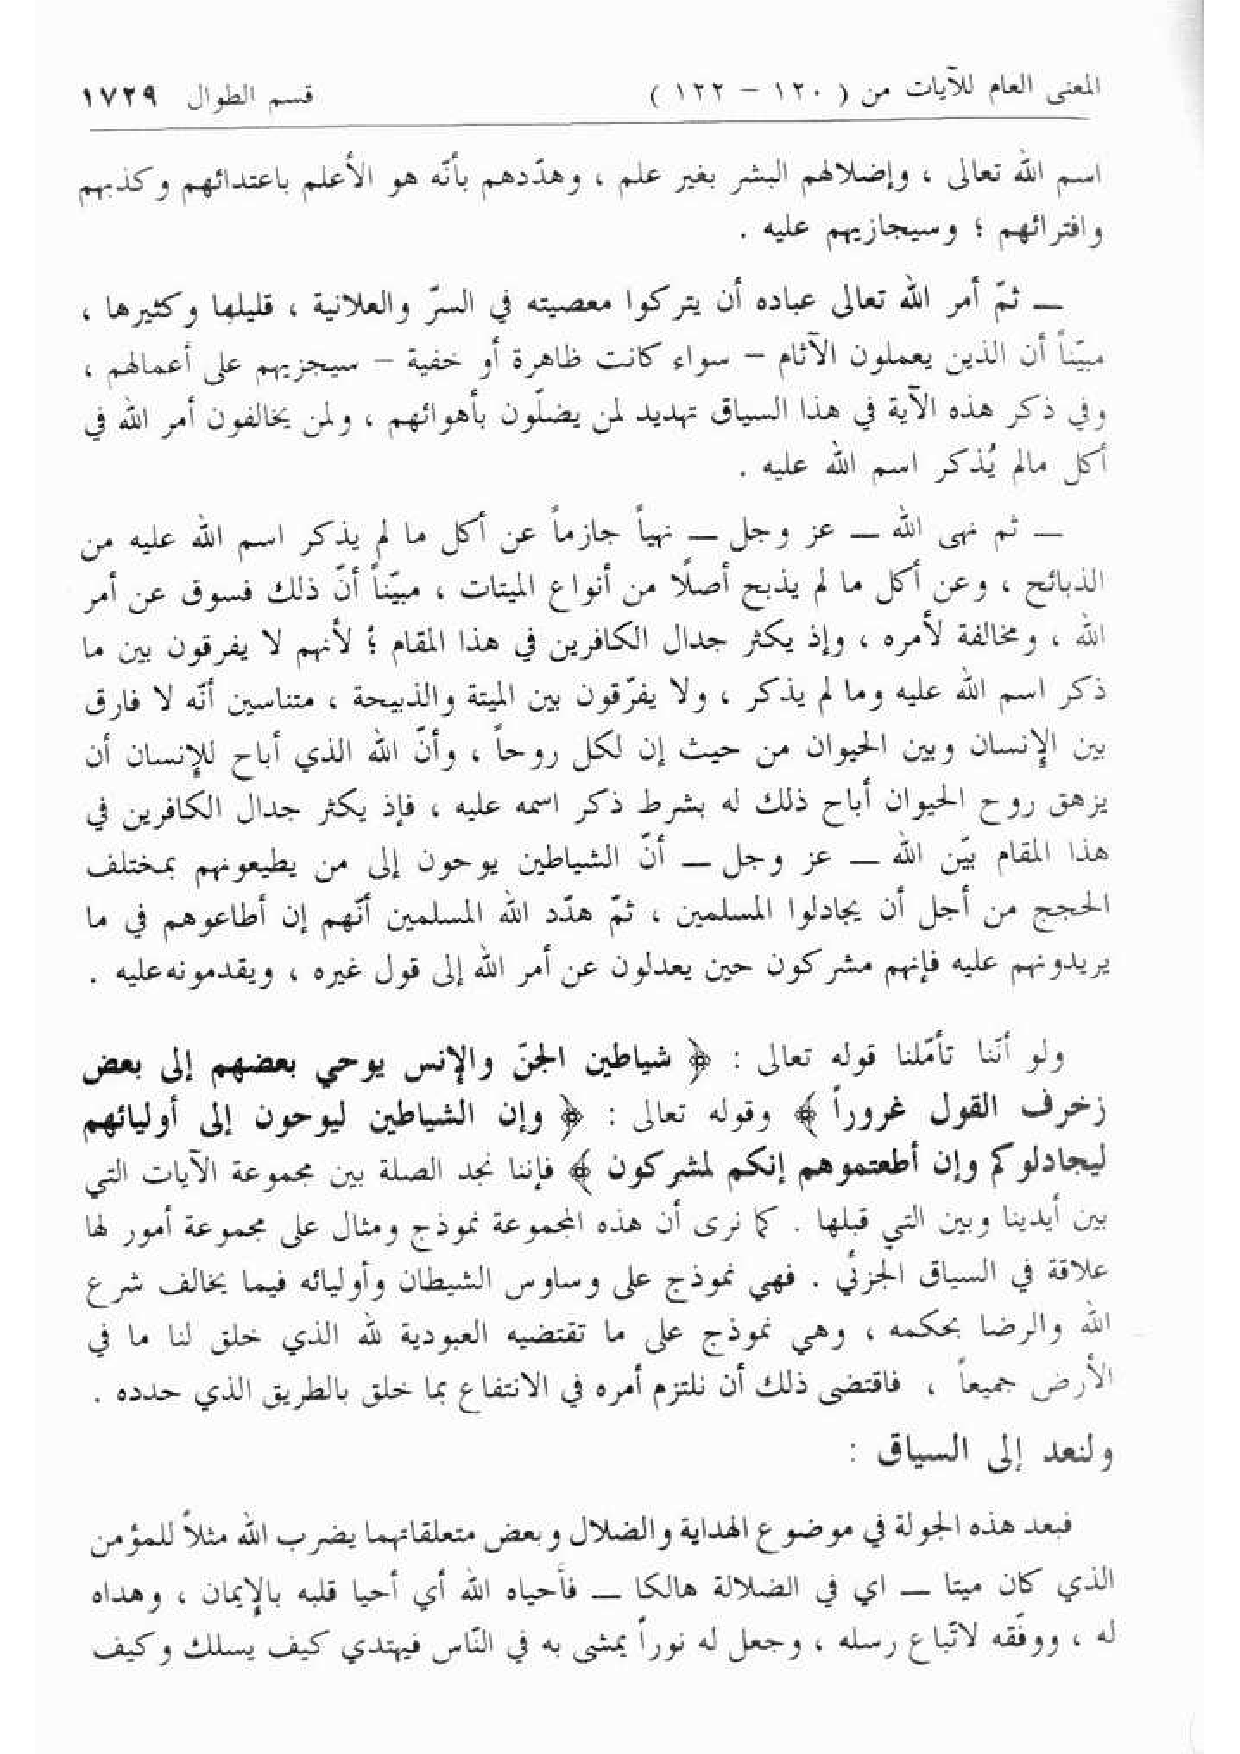 المعنى العام للآيات من ( ١٢٠ – ١٢٢ ) قسم الطوال ١٧٢٩
اسم الله تعالى ، وإضلالهم البشر بغير علم ، وهدّدهم بأنّه هو الأعلم باعتدائهم وكذبهم
وافترائهم ؛ وسيجازيهم عليه .
ــ ثمّ أمر الله تعالى عباده أن يتركوا معصيته في السرّ والعلانية ، قليلها وكثيرها ،
مبيّناً أن الذين يعملون الآثام – سواء كانت ظاهرة أو خفية – سيجزيهم على أعمالهم ،
وفي ذكر هذه الآية في هذا السياق تهديد لمن يضلّون بأهوائهم ، ولمن يخالفون أمر الله في
أكل مالم يُذكر اسم الله عليه .
ــ ثم نهى الله ــ عز وجل ــ نهياً جازماً عن أكل ما لم يذكر اسم الله عليه من
الذبائح ، وعن أكل ما لم يذبح أصلًا من أنواع الميتات ، مبيّناً أنّ ذلك فسوق عن أمر
الله ، ومخالفة لأمره ، وإذ يكثر جدال الكافرين في هذا المقام ؛ لأنهم لا يفرقون بين ما
ذكر اسم الله عليه وما لم يذكر ، ولا يفرّقون بين الميتة والذبيحة ، متناسين أنّه لا فارق
بين الإنسان وبين الحيوان من حيث إن لكل روحاً ، وأنّ الله الذي أباح للإنسان أن
يزهق روح الحيوان أباح ذلك له بشرط ذكر اسمه عليه ، فإذ يكثر جدال الكافرين في
هذا المقام بيّن الله ــ عز وجل ــ أنّ الشياطين يوحون إلى من يطيعونهم بمختلف
الحجج من أجل أن يجادلوا المسلمين ، ثمّ هدّد الله المسلمين أنّهم إن أطاعوهم في ما
يريدونهم عليه فإنهم مشركون حين يعدلون عن أمر الله إلى قول غيره ، ويقدمونه عليه .
ولو أنّنا تأمّلنا قوله تعالى : ﴿ شياطين الجنّ والإنس يوحي بعضهم إلى بعض
زخرف القول غروراً ﴾ وقوله تعالى : ﴿ وإن الشياطين ليوحون إلى أوليائهم
ليجادلوكم وإن أطعتموهم إنكم لمشركون ﴾ فإننا نجد الصلة بين مجموعة الآيات التي
بين أيدينا وبين التي قبلها . كما نرى أن هذه المجموعة نموذج ومثال على مجموعة أمور لها
علاقة في السياق الجزئي . فهي نموذج على وساوس الشيطان وأوليائه فيما يخالف شرع
الله والرضا بحكمه ، وهي نموذج على ما تقتضيه العبودية لله الذي خلق لنا ما في
الأرض جميعاً ، فاقتضى ذلك أن نلتزم أمره في الانتفاع بما خلق بالطريق الذي حدده .
ولنعد إلى السياق :
فبعد هذه الجولة في موضوع الهداية والضلال وبعض متعلقاتهما يضرب الله مثلاً للمؤمن
الذي كان ميتا ــ اي في الضلالة هالكا ــ فأحياه الله أي أحيا قلبه بالإيمان ، وهداه
له ، ووفّقه لاتّباع رسله ، وجعل له نوراً يمشى به في النّاس فيهتدي كيف يسلك وكيف